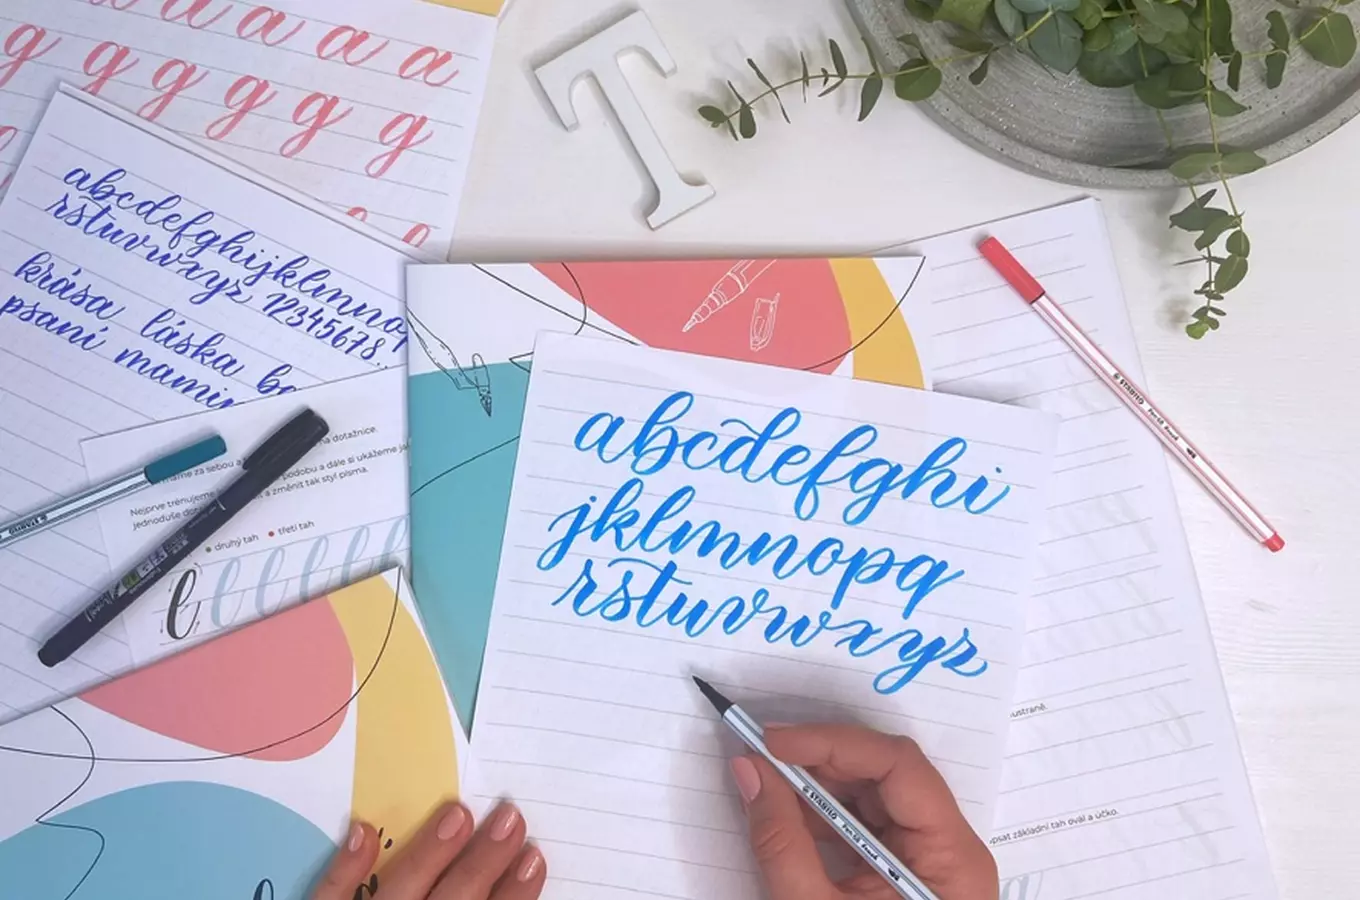 a a a a
g g g g g g
abcdefghijklmnop
rstuvwxyz 12345678..
krása láska
psaní
na dotažnice.
za sebou a podobu a dále si ukážeme
Nejprve trénujeme a změnit tak styl písma.
jednoduše
druhý tah třetí tah
l l l l l l
T
abcdefghi
jklmnopq
rstuvwxyz
STABILO Pen 68 brush
STABILO Pen 68 brush
základní tah ovál a účko.